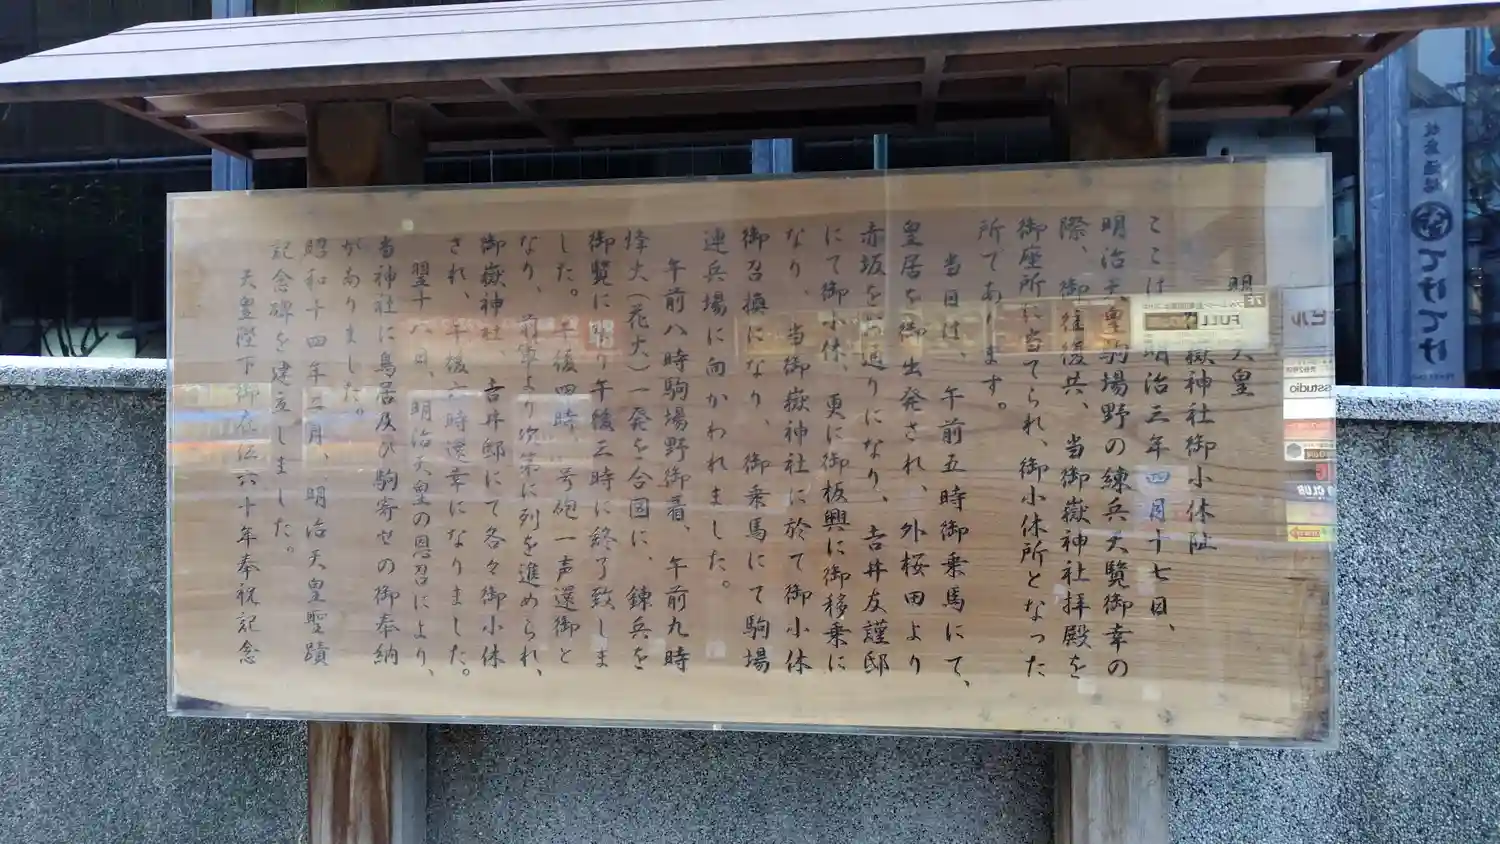 明治天皇
御嶽神社御小休阯
ここは、明治三年四月十七日、
明治天皇駒場野の練兵天覧御幸の
際、御往復共、当御嶽神社拝殿を
御座所に当てられ、御小休所となった
所であります。
当日は、午前五時御乗馬にて、
皇居を御出発され、外桜田より
赤坂をお通りになり、吉井友謹邸
にて御小休、更に御板輿に御移乗に
なり、当御嶽神社に於て御小休
御召換になり、御乗馬にて駒場
連兵場に向かわれました。
午前八時駒場野御着、午前九時
烽火(花火)一発を合図に、錬兵を
御覧になり午後三時に終了致しま
した。午後四時、号砲一声還御と
なり、前軍より次第に列を進められ、
御嶽神社、吉井邸にて各々御小休
され、午後六時還幸になりました。
翌十八日、明治天皇の恩召により、
当神社に鳥居及び駒寄せの御奉納
がありました。
昭和十四年三月、明治天皇聖蹟
記念碑を建立しました。
天皇陛下御在位六十年奉祝記念